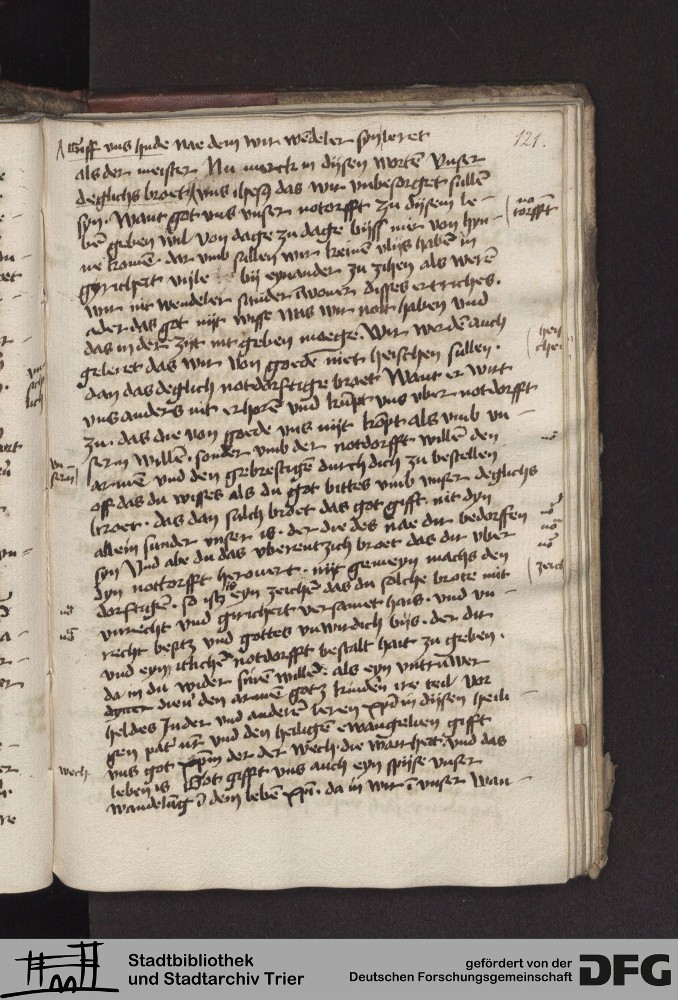 121.
Giff uns hude nae dem wir wēdeler syn leret
als der meister Nu merck in dijsen wortē Unser
deglichs broet uns das wir unbesorget sullē
syn. Want got uns unser notorfft zu dijsem le-
bē geben wil von dage zu dage bijss mir von hyn-
ne komē. dar umb sullen wir keinen vlijs habē in
gyricheit vijle bij eynander zu zihen als werē
wir nit wendeler sunder inwoner disses ertriches.
oder das got nijt wisse was wir noit haben und
das in der zijt nit geben moege. Wir werdē auch
geleret das wir von goede niet heischen sullen.
dan das deglich notdorftige broet Want er wirt
uns anders nit erhorē und kūpt uns uber notdorfft
zu. das die von goede uns nijt kōpt als umb un-
sern willē. sonder umb der notdorfft willē den
armē und den gebrestigē durch dich zu bestellen
off das du wisses als du got bittes umb unser deglichs
broet. das dan sulch broet das got gifft. nit dyn
allein sunder unser is. der die des nae dir bedorffen
syn Und abe du das uberentzich broet das dir uber
dyn nottorfft herovert. nijt gemeyn machs den
dorftigē. so ist is eyn zeichē das du solche brote mit
unrecht und giricheit versamet hais. und un-
recht besitz und gottes unwirdich bijs. der dir
und eym itlichē notdorfft bestalt hait zu geben.
da in du wider sinē willē. als eyn untruwer
dien den armē gotz kinden ire teil vor
heldes In der und anderē leren xpi in dijsen heili-
gen pat nr und den heiligen ewangelien gifft
uns got xpm der der wech. die warheit und das
leben is Got gifft uns auch eyn spijse unser
wandelūg ī dem lebē xpi. da in wir ī unser wan-
no
torfft
zeich
wech
Stadtbibliothek
und Stadtarchiv Trier
gefördert von der
Deutschen Forschungsgemeinschaft
DFG